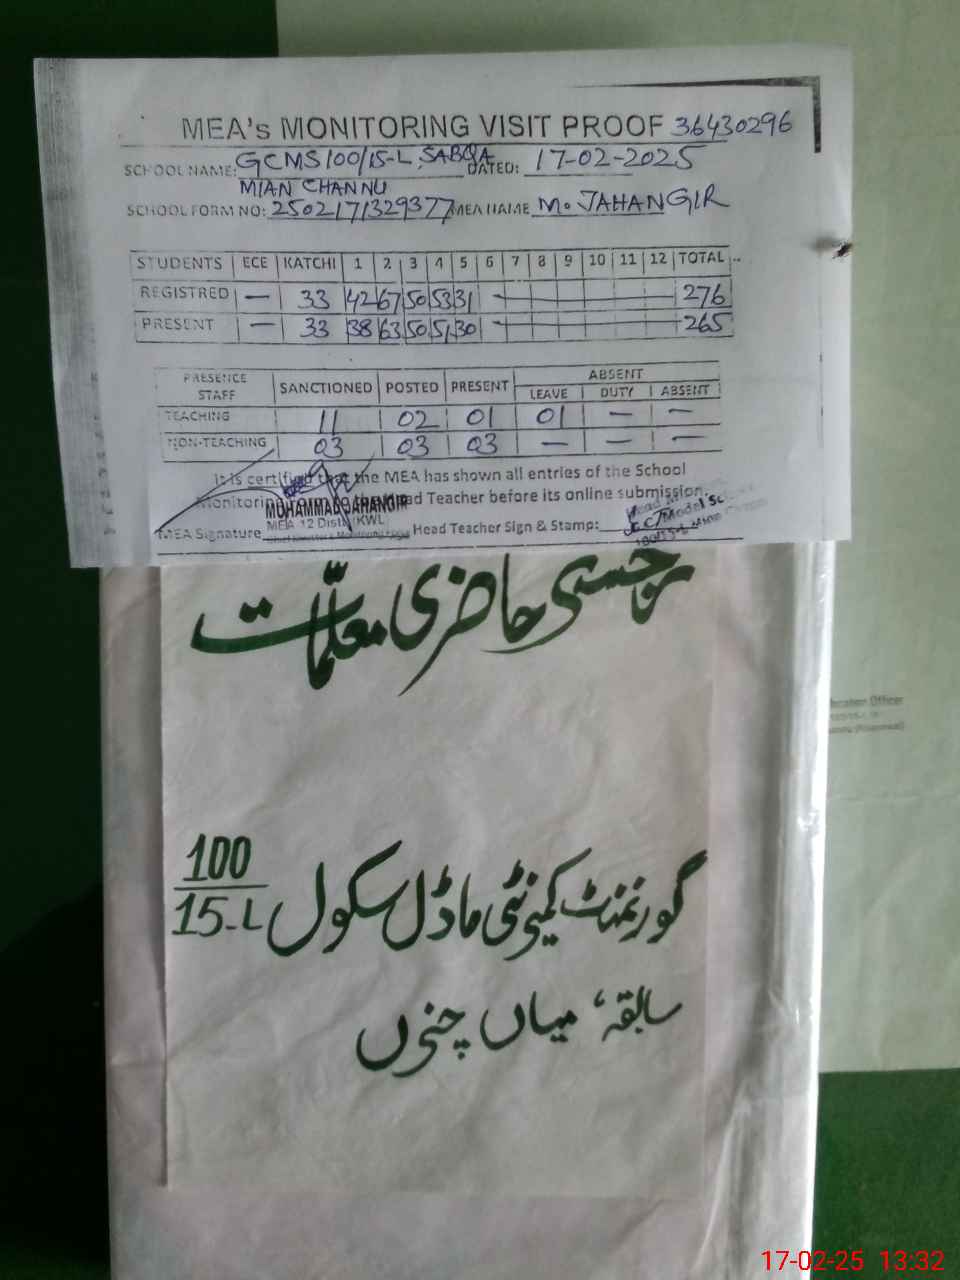 MEA's MONITORING VISIT PROOF 36430296
SCHOOL NAME: GCMS 100/15-L, SABQA DATED: 17-02-2025
MIAN CHANNU
SCHOOL FORM NO: 2502171329377 MEA NAME M. JAHANGIR
STUDENTS ECE KATCHI 1 2 3 4 5 6 7 8 9 10 11 12 TOTAL
REGISTRED — 33 42 67 50 53 31 — 276
PRESENT — 33 38 63 50 51 30 — 265
PRESENCE STAFF SANCTIONED POSTED PRESENT ABSENT
LEAVE DUTY ABSENT
TEACHING 11 02 01 01 — —
NON-TEACHING 03 03 03 — — —
It is certified that the MEA has shown all entries of the School
Monitoring form to the Head Teacher before its online submission
MUHAMMAD JAHANGIR
MEA 12 Distt: KWL
MEA Signature Head Teacher Sign & Stamp:
Model
رجسٹر حاضری معلمات
گورنمنٹ کمیونٹی ماڈل سکول 100/15-L
سابقہ، میاں چنوں
Education Officer
17-02-25 13:32